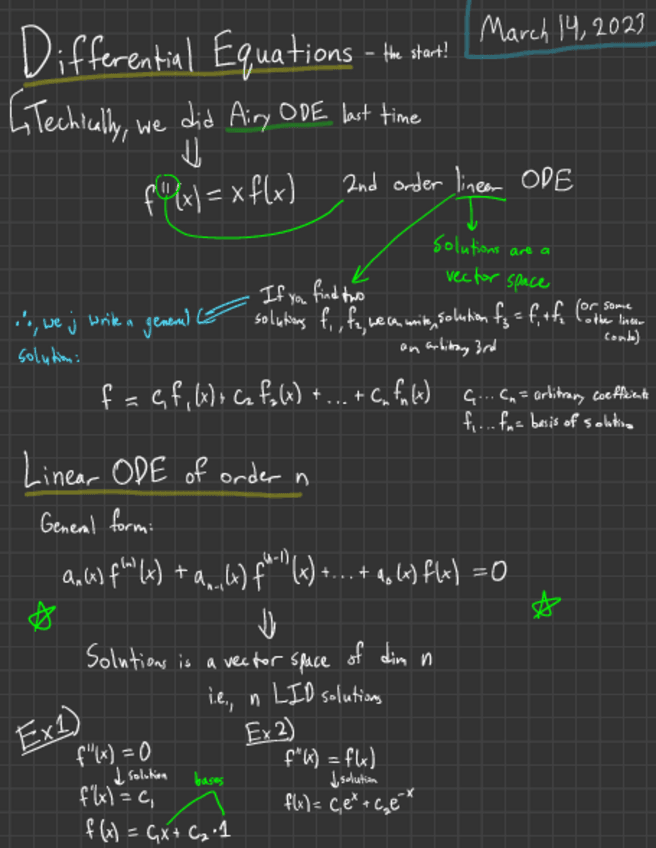 March 14, 2023
Differential Equations - the start!
Techically, we did Airy ODE last time
⇓
f''(x) = x f(x) 2nd order linear ODE
Solutions are a
vector space
If you find two
solutions f₁, f₂, we can write solution f₃ = f₁ + f₂ (or some
other linear
combo)
an arbitrary 3rd
∴, we j write a general
solution:
f = c₁f₁(x) + c₂f₂(x) + ... + cₙfₙ(x)
c₁ ... cₙ = arbitrary coefficients
f₁ ... fₙ = basis of solution
Linear ODE of order n
General form:
aₙ(x) f⁽ⁿ⁾(x) + aₙ₋₁(x) f⁽ⁿ⁻¹⁾(x) + ... + a₀(x) f(x) = 0
⇓
Solutions is a vector space of dim n
i.e., n LID solutions
Ex 1)
f''(x) = 0
↓ solution
f'(x) = c₁
bases
f(x) = c₁x + c₂·1
Ex 2)
f''(x) = f(x)
↓ solution
f(x) = c₁eˣ + c₂e⁻ˣ